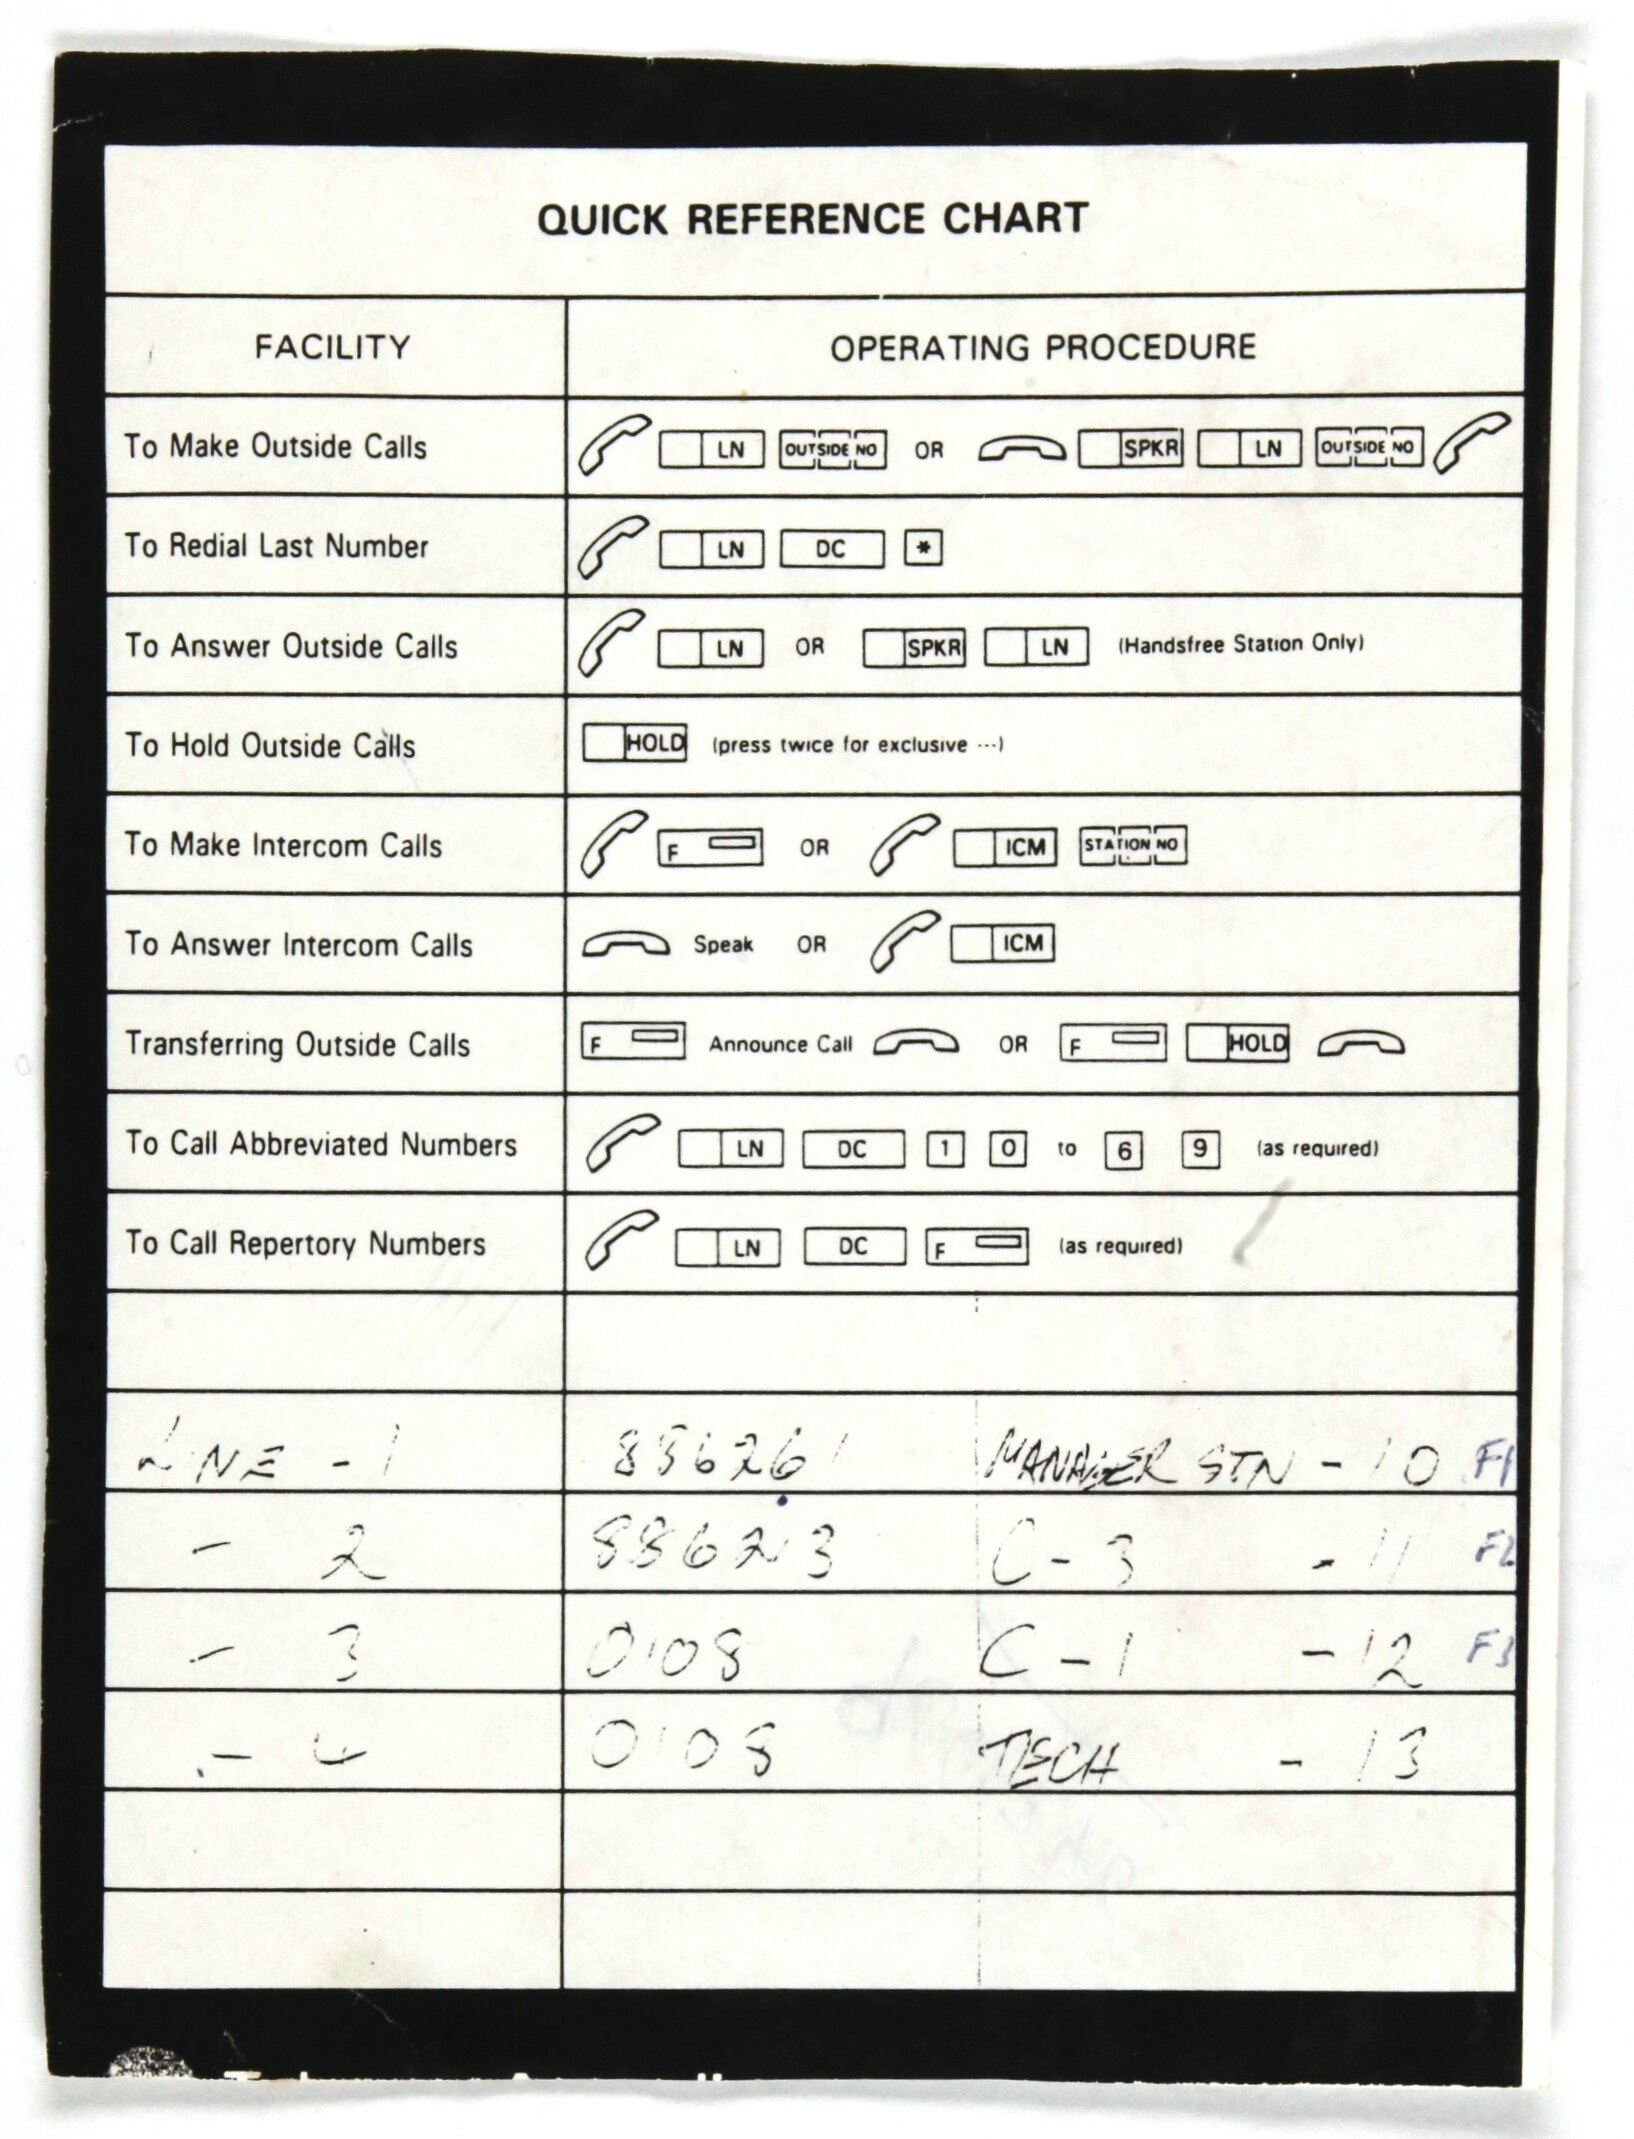 QUICK REFERENCE CHART
FACILITY OPERATING PROCEDURE
To Make Outside Calls LN OUTSIDE NO OR SPKR LN OUTSIDE NO
To Redial Last Number LN DC *
To Answer Outside Calls LN OR SPKR LN (Handsfree Station Only)
To Hold Outside Calls HOLD (press twice for exclusive ---)
To Make Intercom Calls F OR ICM STATION NO
To Answer Intercom Calls Speak OR ICM
Transferring Outside Calls F Announce Call OR F HOLD
To Call Abbreviated Numbers LN DC 1 0 to 6 9 (as required)
To Call Repertory Numbers LN DC F (as required)
LINE - 1 886261 MANAGER STN - 10 F1
- 2 886213 C - 3 - 11 F2
- 3 0108 C - 1 - 12 F3
- 4 0108 TECH - 13